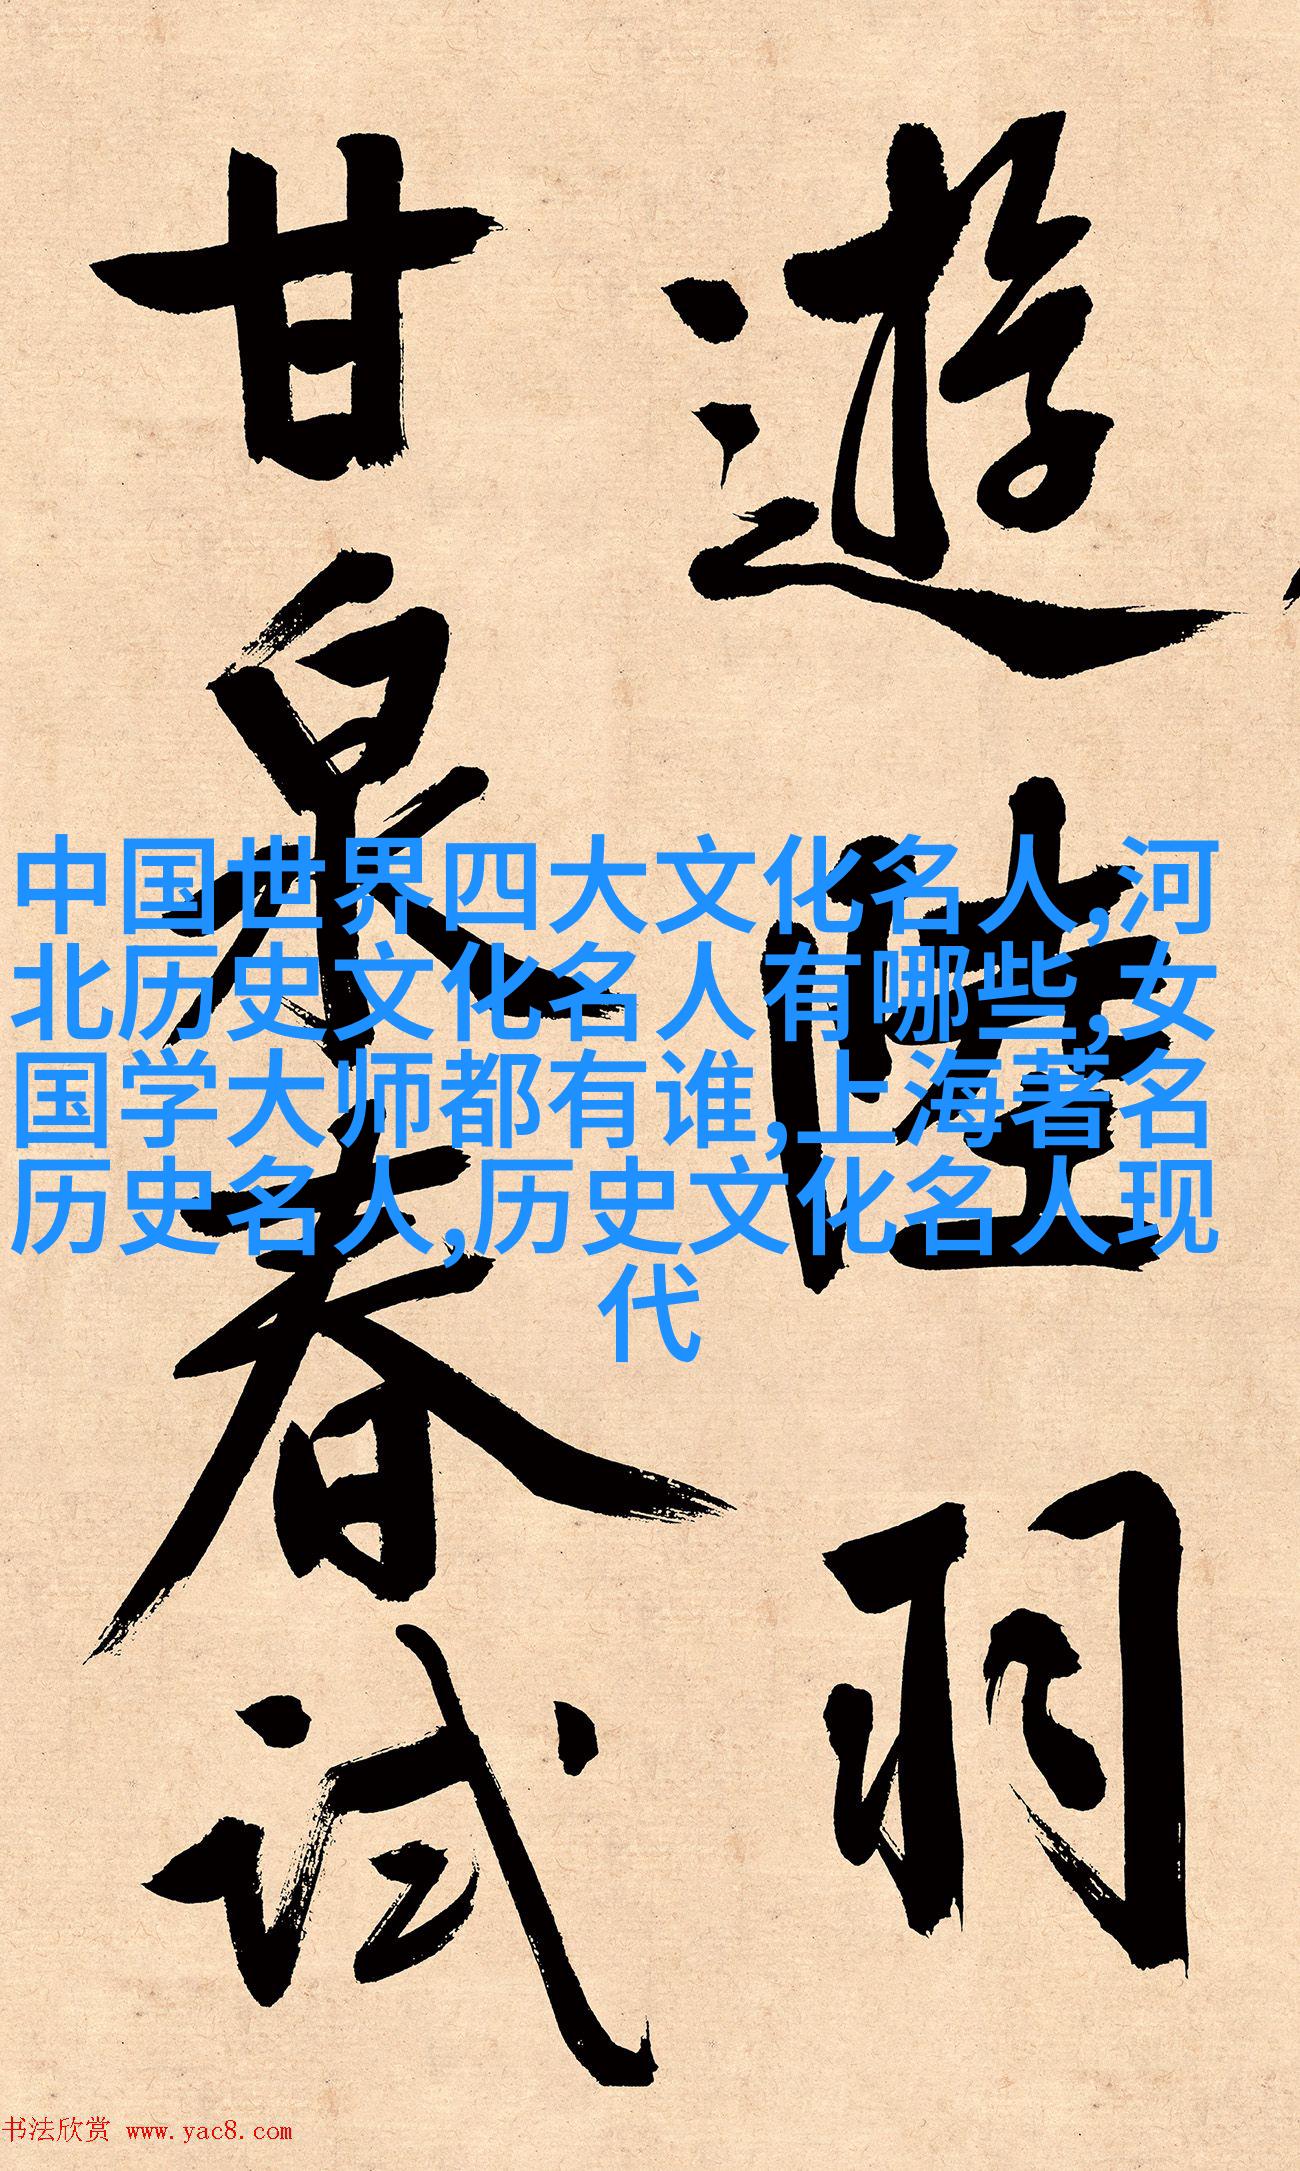 遊陸羽
甘泉春试
中国世界四大文化名人,河
北历史文化名人有哪些,女
国学大师都有谁,上海著名
历史名人,历史文化名人现
代
书法欣赏 www.yac8.com